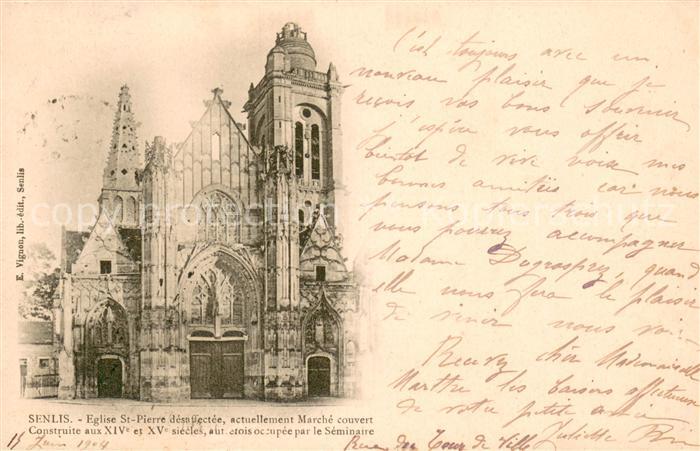 C'est toujours avec un
nouveau plaisir que je
reçois vos bons souvenir
j'espère vous offrir
bientôt de vive voise mes
bonnes amitiés car nous
pensons tous trois que
vous pourrez accompagner
Madame quand
elle nous fera le plaisir
de venir nous voir
Recevez cher Mademoiselle
Marthe les baisers affectueux
de votre petite amie
Juliette
E. Vignon, lib. édit., Senlis
SENLIS. - Eglise St-Pierre désaffectée, actuellement Marché couvert
Construite aux XIVe et XVe siècles, autrefois occupée par le Séminaire
15 Juin 1904
Rue du Tour de Ville
copyright